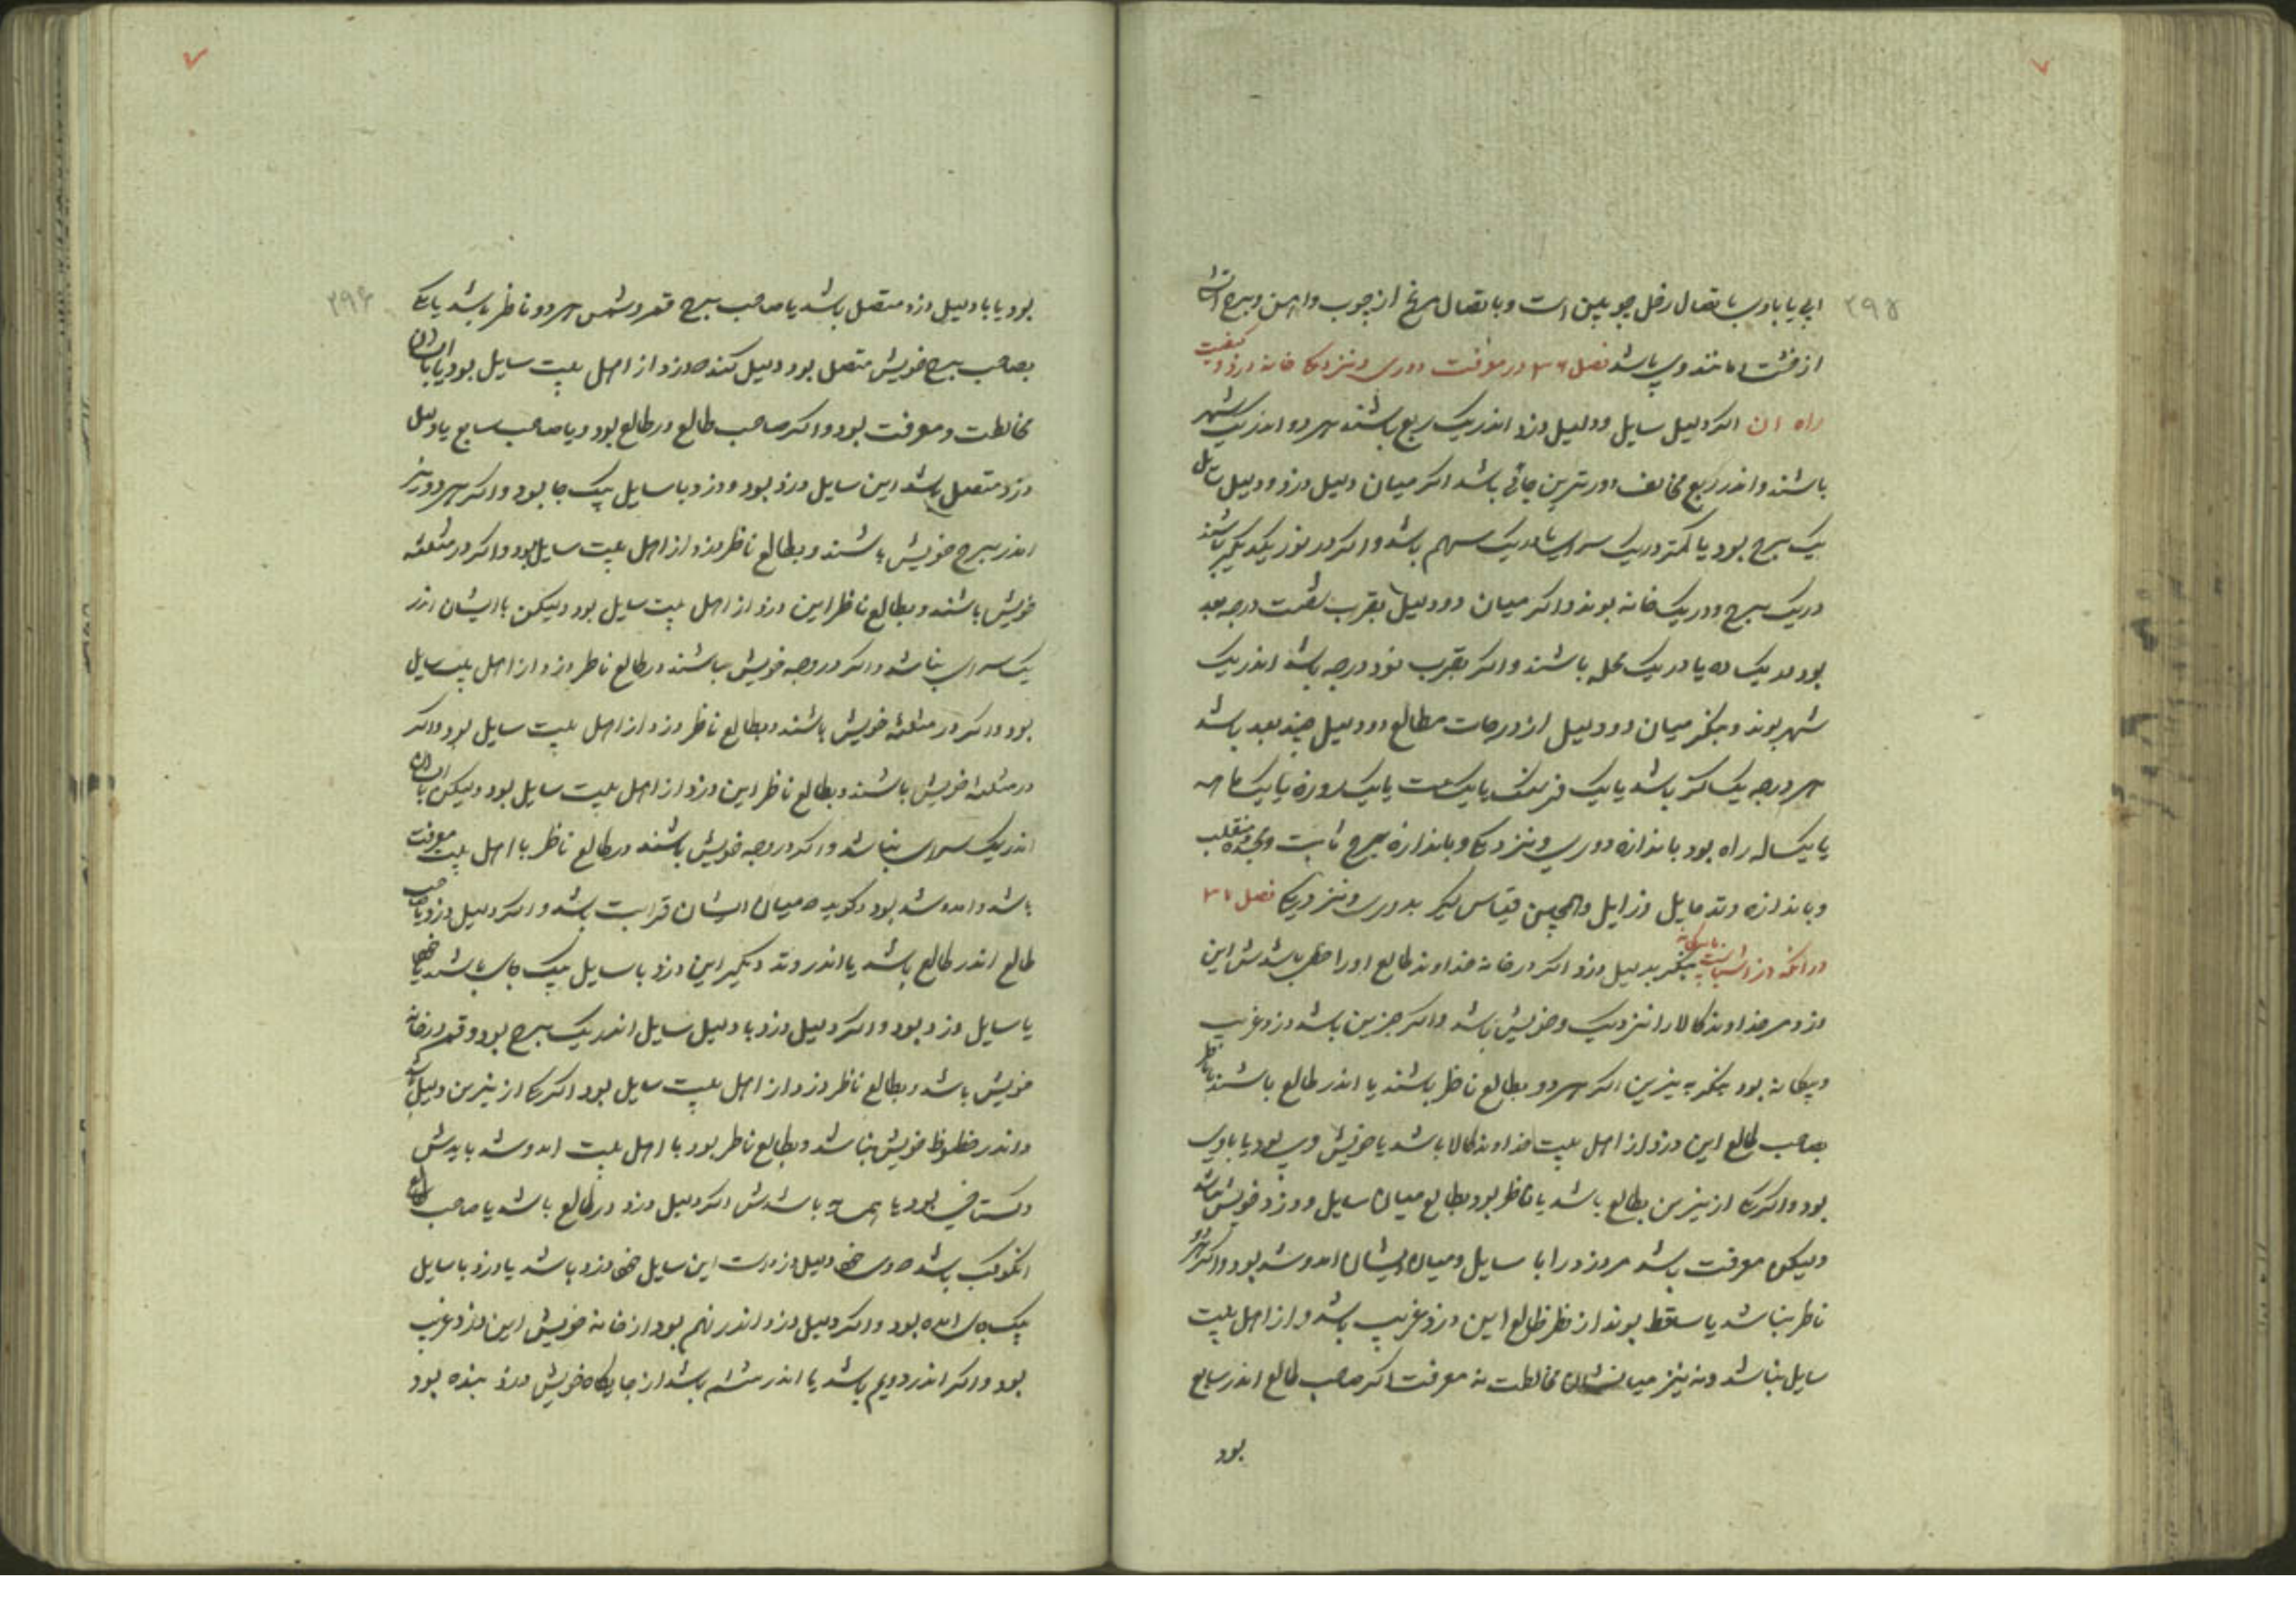 ۲۹۵
ابی یا بادی باتصال زحل چوبین است و باتصال مریخ از چوب و اهن و برج
از خشت و مانند وی باشد فصل ۳۶ در معرفت دوری و نزدیکی خانه دزد و کیفیت
راه ان اکر دلیل سایل و دلیل دزد اندر یک ربع باشند هر دو اندر یک شهر
باشند و اندر ربع مخالف دورترین جائی باشد اکر میان دلیل دزد و دلیل سایل
یک برج بود یا کمتر در یک سرای یا در یک سهم باشد و اکر در نور یکدیکر باشند
در یک برج و در یک خانه بوند و اکر میان دو دلیل بقرب شصت درجه بعد
بود در یک ده یا در یک محله باشند و اکر بقرب نود درجه باشد اندر یک
شهر بوند و بنکر میان دو دلیل از درجات مطالع دو دلیل چند بعد باشد
هر درجه یک باشد یا یک فرسنک یا یک ساعت یا یک روزه یا یک ماهه
یا یکساله راه بود باندازه دوری و نزدیکی و باندازه برج ثابت و مجسده و منقلب
و باندازه وتد مایل و زایل و همچنین قیاس کیر بدوری و نزدیکی فصل ۳۷
در انکه دزد اشناست یا بیکانه بنکر بدلیل دزد اکر در خانه خداوند طالع او را حظی باشدش این
دزد مر خداوند کالا را نزدیک و خویش باشد و اکر جز این باشد دزد غریب
و بیکانه بود بنکر به نیرین اکر هر دو بطالع ناظر باشند یا اندر طالع باشند یا ناظر
بصاحب طالع این دزد از اهل بیت خداوند کالا باشد یا خویش وی بود یا با وی
بود و اکر یکی از نیرین بطالع باشد یا ناظر بود بطالع میان سایل و دزد خویشی نباشد
ولیکن معرفت باشد مر دزد را با سایل و میان ایشان امد و شد بود و اکر هر دو
ناظر نباشد یا ساقط بوند از نظر طالع این دزد غریب باشد و از اهل بیت
سایل نباشد و نه نیز میانشان مخالطت نه معرفت اکر صاحب طالع اندر سابع
بود
۲۹۶
بود یا با دلیل دزد متصل باشد یا صاحب برج قمر و شمس هر دو ناظر باشد یا یکی
بصاحب برج خویش متصل بود دلیل کند که دزد از اهل بیت سایل بود یا با ایشان
مخالطت و معرفت بود و اکر صاحب طالع در طالع بود و یا صاحب سابع یا دلیل
دزد متصل باشد این سایل دزد بود و دزد با سایل یک جا بود و اکر هر دو نیر
اندر برج خویش باشند و بطالع ناظر دزد از اهل بیت سایل بود و اکر در مثلثه
خویش باشند و بطالع ناظر این دزد از اهل بیت سایل بود ولیکن با ایشان اندر
یک سرای نباشد و اکر در وجه خویش باشند در طالع ناظر دزد از اهل بیت سایل
بود و اکر در مثلثه خویش باشند و بطالع ناظر دزد از اهل بیت سایل بود و اکر
در مثلثه خویش باشند و بطالع ناظر این دزد از اهل بیت سایل بود ولیکن با ایشان
اندر یک سرای نباشد و اکر در وجه خویش باشند در طالع ناظر با اهل بیت معرفت
باشد و امد و شد بود و کوید که میان ایشان قرابت باشد و اکر دلیل دزد با صاحب
طالع اندر طالع باشد یا اندر وتد دیکر این دزد با سایل یک جای باشد یا خود
یا سایل دزد بود و اکر دلیل دزد با دلیل سایل اندر یک برج بود و قمر در خانه
خویش باشد و بطالع ناظر دزد از اهل بیت سایل بود اکر یکی از نیرین دلیل باشد
و اندر حظوظ خویش نباشد و بطالع ناظر بود با اهل بیت امد و شد بایدش
و کستاخی بود یا همسایه باشدش اکر دلیل دزد در طالع باشد یا صاحب طالع
انکوکب باشد که وی دلیل دزدست این سایل خود دزد باشد یا دزد با سایل
یک جای امده بود و اکر دلیل دزد اندر نهم بود از خانه خویش این دزد غریب
بود و اکر اندر دویم باشد یا اندر ششم باشد از جایکاه خویش دزد بنده بود